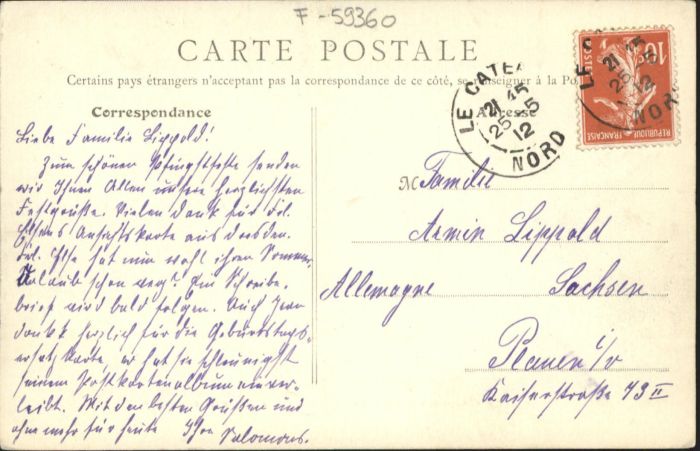 F-59360
CARTE POSTALE
Certains pays étrangers n'acceptant pas la correspondance de ce côté, se renseigner à la Po
Correspondance
Adresse
LE CATE
21 15
25-5
12
NORD
10c
POSTES
REPUBLIQUE FRANÇAISE
Liebe Familie Lippold!
Zum schönen Pfingstfeste senden
wir Ihnen Allen unsere herzlichsten
Festgrüße. Vielen Dank für Frl.
Ilsens Ansichtskarte aus Dresden.
Frl. Ilse hat nun wohl ihren Sommer-
Urlaub schon weg? Ein Schreibe-
brief wird bald folgen. Auch Jean
dankt herzlich für die Geburtstags-
ersatzkarte, er hat sie schleunigst
seinem Postkartenalbum einver-
leibt. Mit den besten Grüßen und
ohne mehr für heute Ihre Salomons.
M Familie
Armin Lippold
Allemagne Sachsen
Plauen i/V
Kaiserstraße 73 II